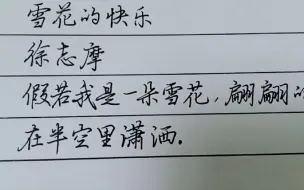 雪花的快乐
徐志摩
假若我是一朵雪花,翩翩的
在半空里潇洒.